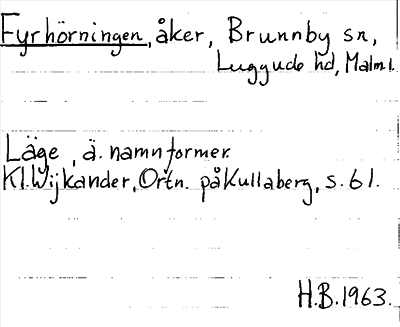 Fyrhörningen, åker, Brunnby sn,
Luggude hd, Malm.l.
Läge, ä. namnformer.
Kl. Wijkander, Ortn. på Kullaberg, s. 61.
H.B. 1963.